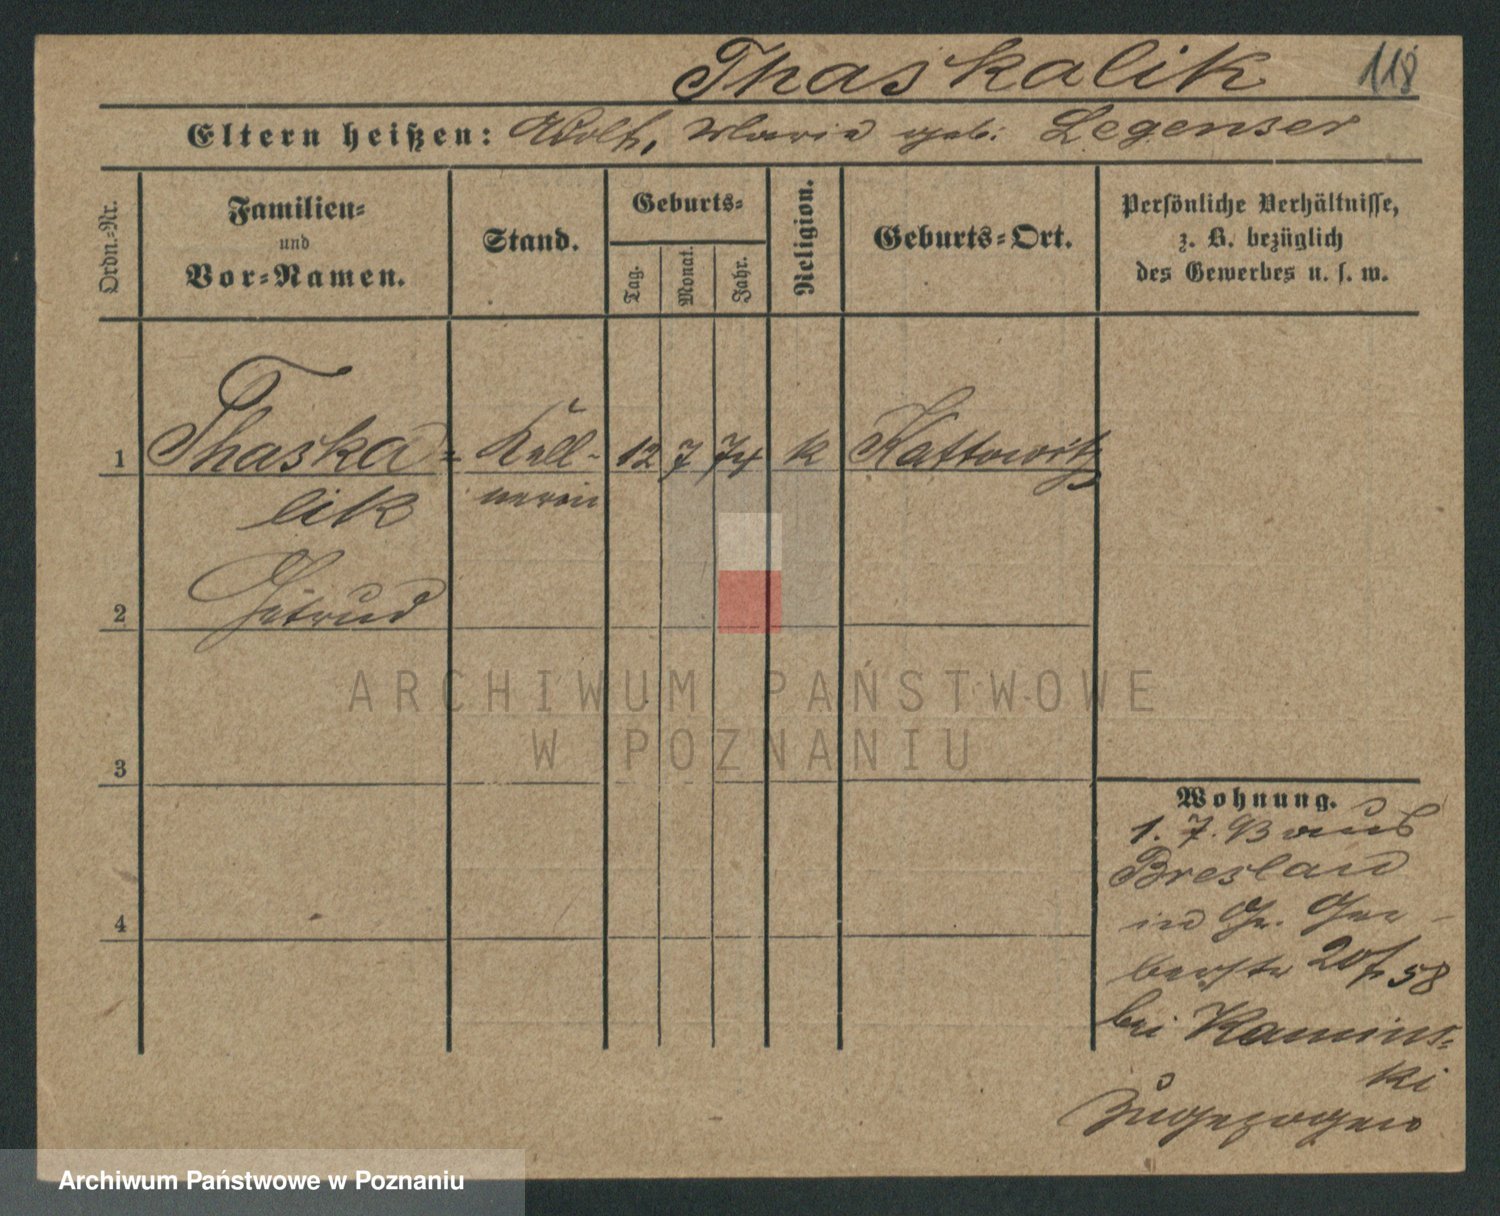 Thaskalik 118
Eltern heißen: Adolf, Maria geb. Legenser
Ordn.-Nr.
Familien-
und
Vor-Namen.
Stand.
Geburts-
Tag.
Monat.
Jahr.
Religion.
Geburts-Ort.
Persönliche Verhältnisse,
z. B. bezüglich
des Gewerbes u. s. w.
1 Thaska- Kell- 12 7 74 k Kattowitz
lik nerin
2
3
4
Wohnung.
1. 7. 93 aus
Breslau
in Gr. Ger-
berstr 20 58
bei Kamins-
ki
zugezogen
ARCHIWUM PAŃSTWOWE
W POZNANIU
Archiwum Państwowe w Poznaniu